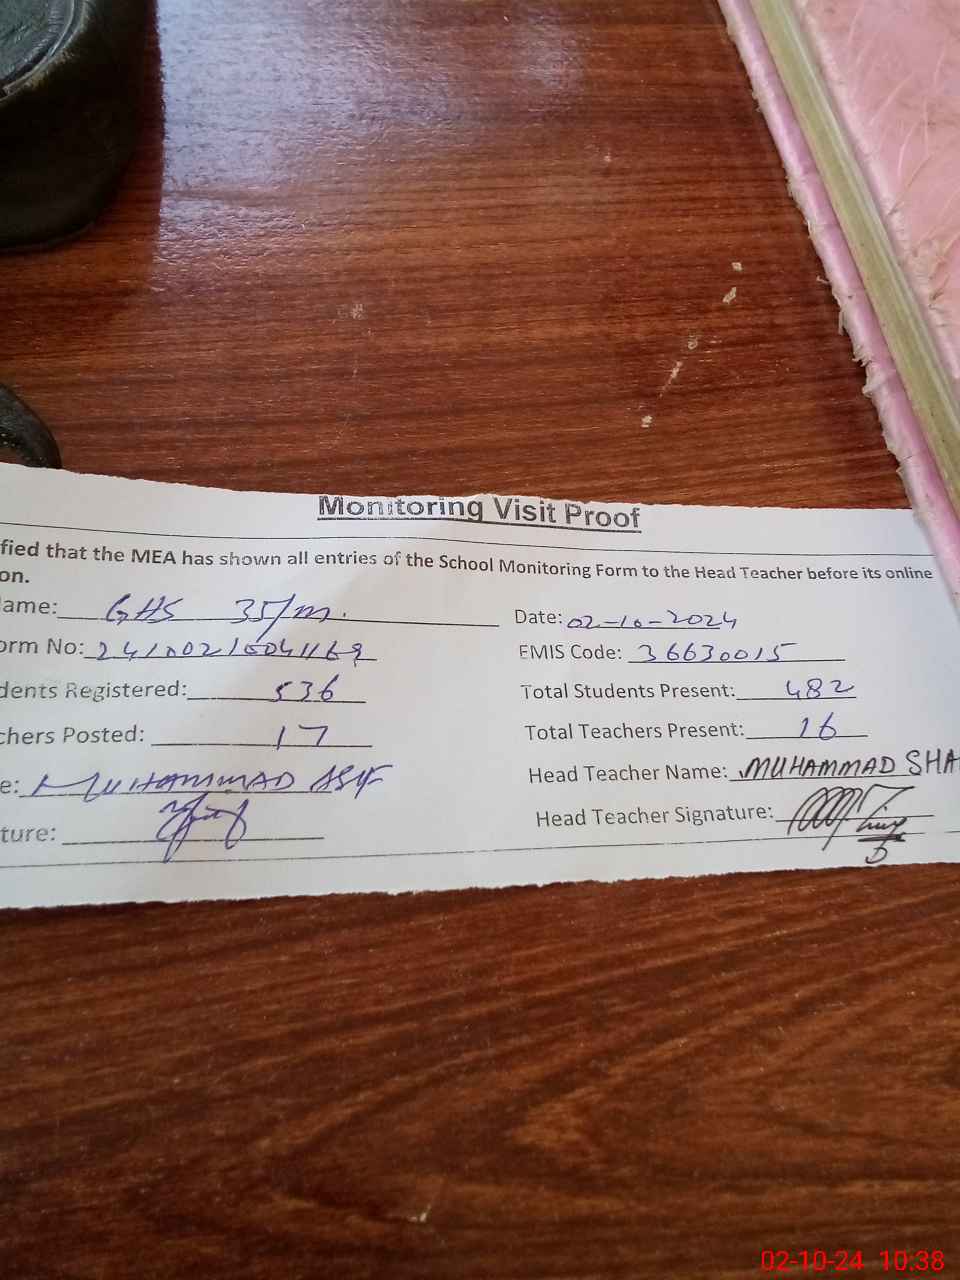 Monitoring Visit Proof
fied that the MEA has shown all entries of the School Monitoring Form to the Head Teacher before its online
on.
ame: GHS 35/m. Date: 02-10-2024
orm No: EMIS Code: 36630015
dents Registered: 536 Total Students Present: 482
chers Posted: 17 Total Teachers Present: 16
e: MUHAMMAD ASIF Head Teacher Name: MUHAMMAD SHA
ture: Head Teacher Signature:
02-10-24 10:38